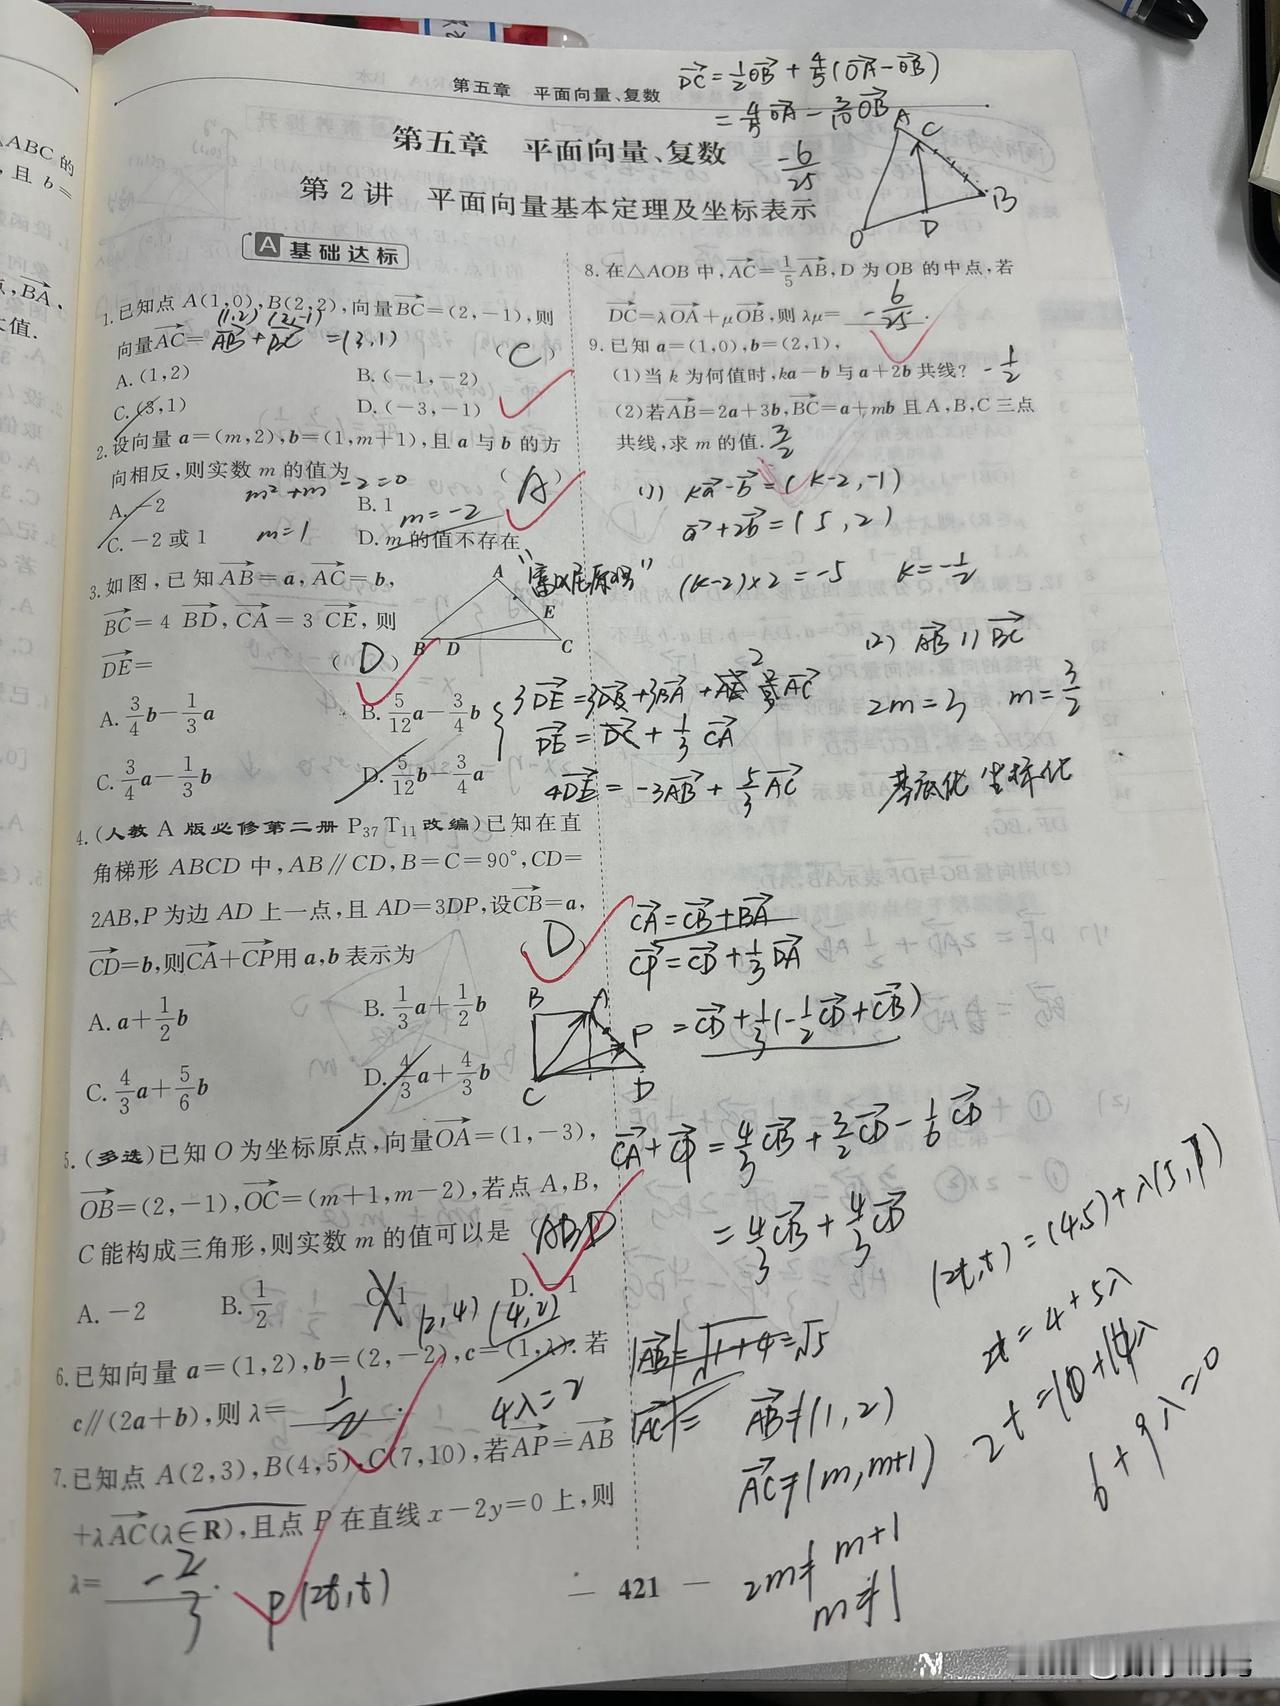 第五章 平面向量、复数
DC=½OB+4/5(OA-OB)
=4/5OA-3/10OB
-6/25
第五章 平面向量、复数
第2讲 平面向量基本定理及坐标表示
A 基础达标
1.已知点A(1,0),B(2,2),向量BC=(2,-1),则
(1,2) (2,-1)
向量AC= AB+BC =(3,1) (C)
A.(1,2) B.(-1,-2)
C.(3,1) D.(-3,-1)
2.设向量a=(m,2),b=(1,m+1),且a与b的方
向相反,则实数m的值为 (A)
m²+m-2=0
A.-2 B.1
m=1 m=-2
C.-2或1 D.m的值不存在
3.如图,已知AB=a,AC=b,
BC=4BD,CA=3CE,则
DE= (D)
A E B D C
A.3/4b-1/3a B.5/12a-3/4b
C.3/4a-1/3b D.5/12b-3/4a
DE=DC+1/3CA
4DE=-3AB+5/3AC
4.(人教A版必修第二册P37T11改编)已知在直
角梯形ABCD中,AB∥CD,B=C=90°,CD=
2AB,P为边AD上一点,且AD=3DP,设CB=a,
CD=b,则CA+CP用a,b表示为 (D)
A.a+1/2b B.1/3a+1/2b
C.4/3a+5/6b D.4/3a+4/3b
B A P C D
CA=CB+BA
CP=CD+1/3DA
=CD+1/3(-1/2CD+CB)
CA+CP=4/3CB+3/2CD-1/6CD
=4/3CB+4/3CD
5.(多选)已知O为坐标原点,向量OA=(1,-3),
OB=(2,-1),OC=(m+1,m-2),若点A,B,
C能构成三角形,则实数m的值可以是(ABD
A.-2 B.1/2 C.1 D.-1
(2,4) (4,2)
6.已知向量a=(1,2),b=(2,-2),c=(1,λ).若
c∥(2a+b),则λ=1/2. 4λ=2
7.已知点A(2,3),B(4,5),C(7,10),若AP=AB
+λAC(λ∈R),且点P在直线x-2y=0上,则
λ=-2/3. P(2t,t)
|AB|=√1+4=√5
|AC|=
AB≠(1,2)
AC≠(m,m+1)
2m≠m+1
m≠1
2t=4+5λ
6+9λ=0
A C O D B
8.在△AOB中,AC=1/5AB,D为OB的中点,若
DC=λOA+μOB,则λμ=-6/25.
9.已知a=(1,0),b=(2,1),
(1)当k为何值时,ka-b与a+2b共线? -1/2
(2)若AB=2a+3b,BC=a+mb且A,B,C三点
共线,求m的值. 3/2
(1) ka-b=(k-2,-1)
a+2b=(5,2)
(k-2)×2=-5 k=-1/2
(2) AB∥BC
2m=3 m=3/2
基底化 坐标化
— 421 —